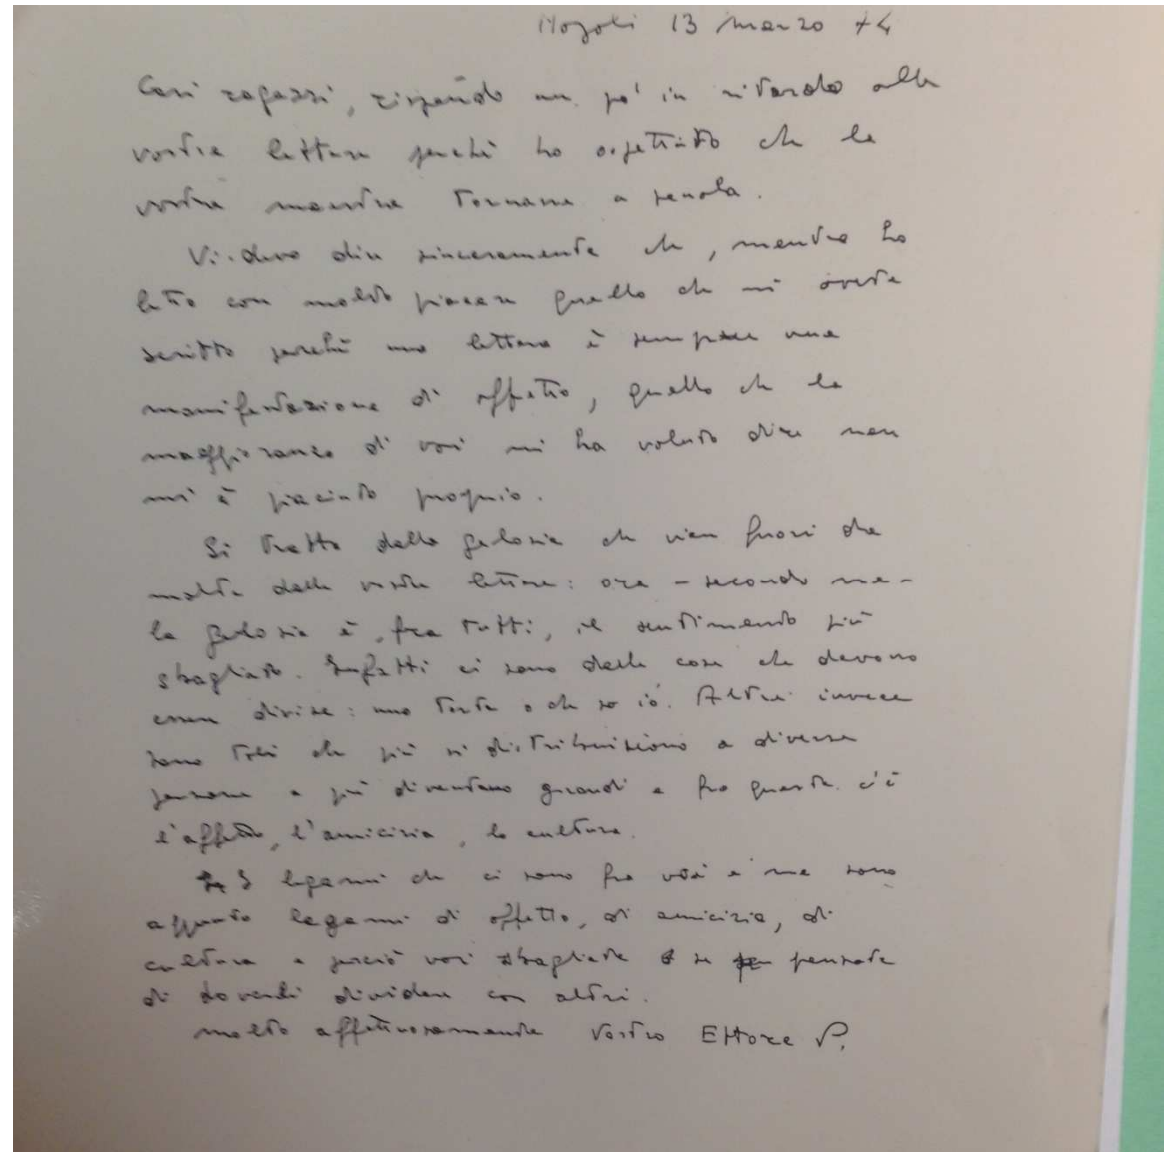 Napoli 13 marzo 74
Cari ragazzi, rispondo un po' in ritardo alle
vostre lettere perché ho aspettato che la
vostra maestra tornasse a scuola.
Vi devo dire sinceramente che, mentre ho
letto con molto piacere quello che mi avete
scritto perché una lettera è sempre una
manifestazione di affetto, quello che la
maggioranza di voi mi ha voluto dire non
mi è piaciuto proprio.
Si tratta della gelosia che vien fuori da
molte delle vostre lettere: ora - secondo me -
la gelosia è, fra tutti, il sentimento più
sbagliato. Infatti ci sono delle cose che devono
essere divise: una torta o che so io. Altre invece
sono tali che più si distribuiscono a diverse
persone e più diventano grandi e fra queste c'è
l'affetto, l'amicizia, la cultura.
I legami che ci sono fra voi e me sono
appunto legami di affetto, di amicizia, di
cultura e perciò voi sbagliate se pensate
di doverli dividere con altri.
molto affettuosamente vostro Ettore P.